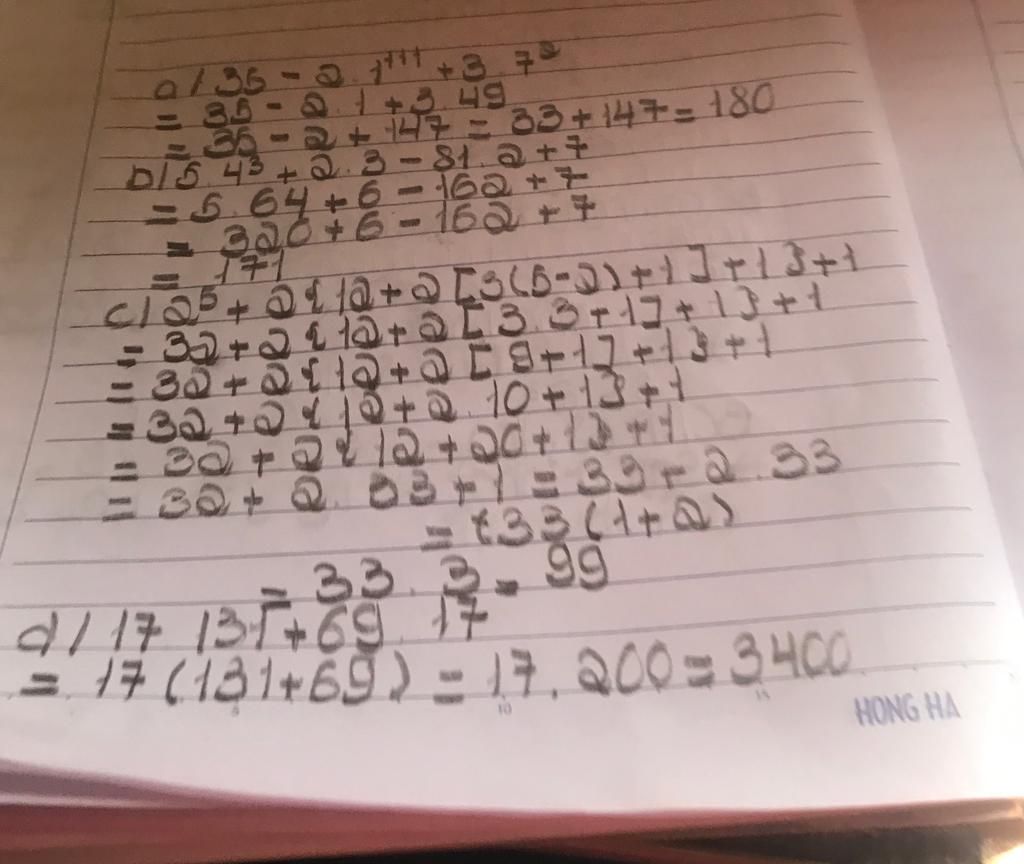 a/ 35 - 2 . 1¹¹¹ + 3 . 7²
= 35 - 2 . 1 + 3 . 49
= 35 - 2 + 147 = 33 + 147 = 180
b/ 5 . 4³ + 2 . 3 - 81 . 2 + 7
= 5 . 64 + 6 - 162 + 7
= 320 + 6 - 162 + 7
= 171
c/ 2⁵ + 2{12 + 2[3(5-2) + 1] + 1} + 1
= 32 + 2{12 + 2[3.3 + 1] + 1} + 1
= 32 + 2{12 + 2[9 + 1] + 1} + 1
= 32 + 2{12 + 2 . 10 + 1} + 1
= 32 + 2{12 + 20 + 1} + 1
= 32 + 2 . 33 + 1 = 33 + 2 . 33
= 33(1 + 2)
= 33 . 3 = 99
d/ 17 . 131 + 69 . 17
= 17(131 + 69) = 17 . 200 = 3400
HONG HA